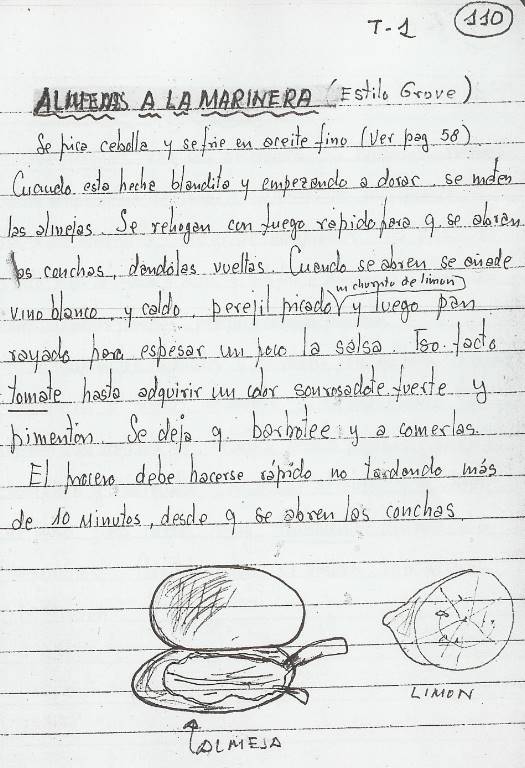 T-1
110
ALMEJAS A LA MARINERA (Estilo Grove)
Se pica cebolla y se fríe en aceite fino (Ver pag 58)
Cuando esta hecha blandita y empezando a dorar, se meten
las almejas. Se rehogan con fuego rápido para q. se abran
las conchas, dándolas vueltas. Cuando se abren se añade
un chorrito de limon
vino blanco, y caldo, perejil picado y luego pan
rayado para espesar un poco la salsa. Iso-facto
tomate hasta adquirir un color sonrosadote fuerte y
pimentón. Se deja q. barbotee y a comerlas.
El proceso debe hacerse rápido no tardando más
de 10 Minutos, desde q se abren las conchas
LIMON
ALMEJA